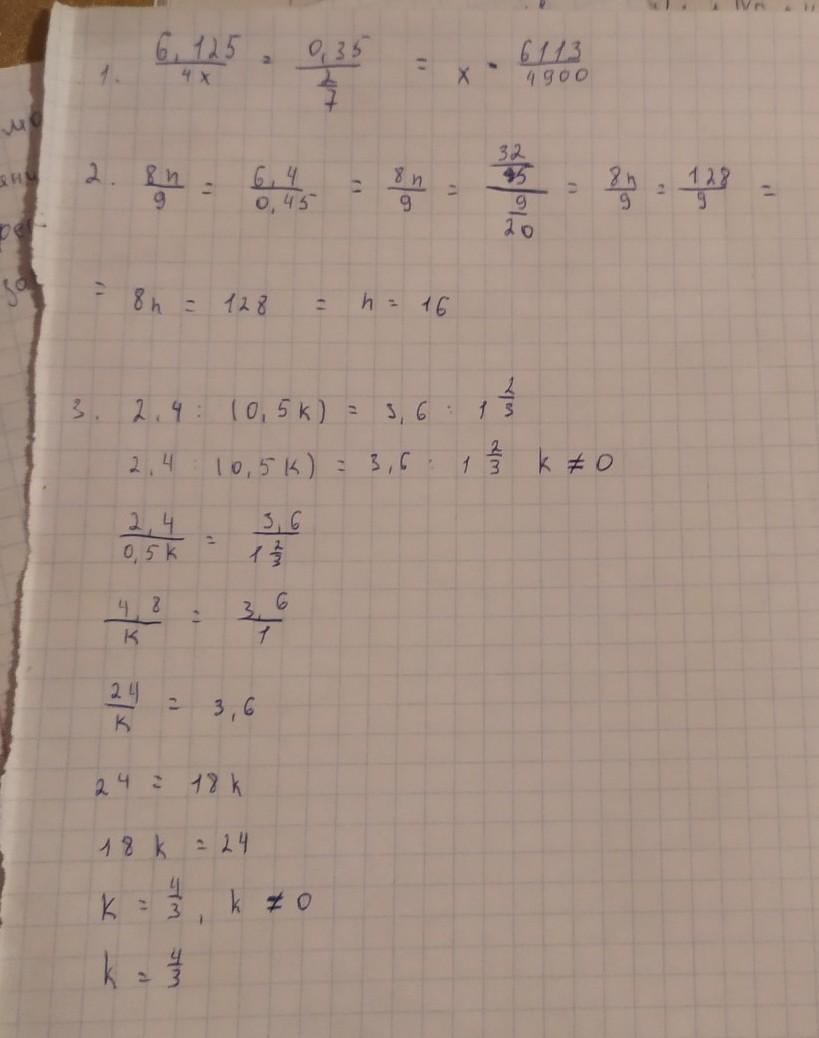 мо
1. 6,125/4x = 0,35/(2/7) = x - 6113/4900
2. 8n/9 = 6,4/0,45 = 8n/9 = (32/5)/(9/20) = 8n/9 = 128/9 =
= 8n = 128 = n = 16
3. 2,4 : (0,5k) = 3,6 : 1 2/3
2,4 : (0,5k) = 3,6 : 1 2/3 k ≠ 0
2,4/0,5k = 3,6/1 2/3
4,8/k = 3,6/1
24/k = 3,6
24 = 18k
18k = 24
k = 4/3, k ≠ 0
k = 4/3